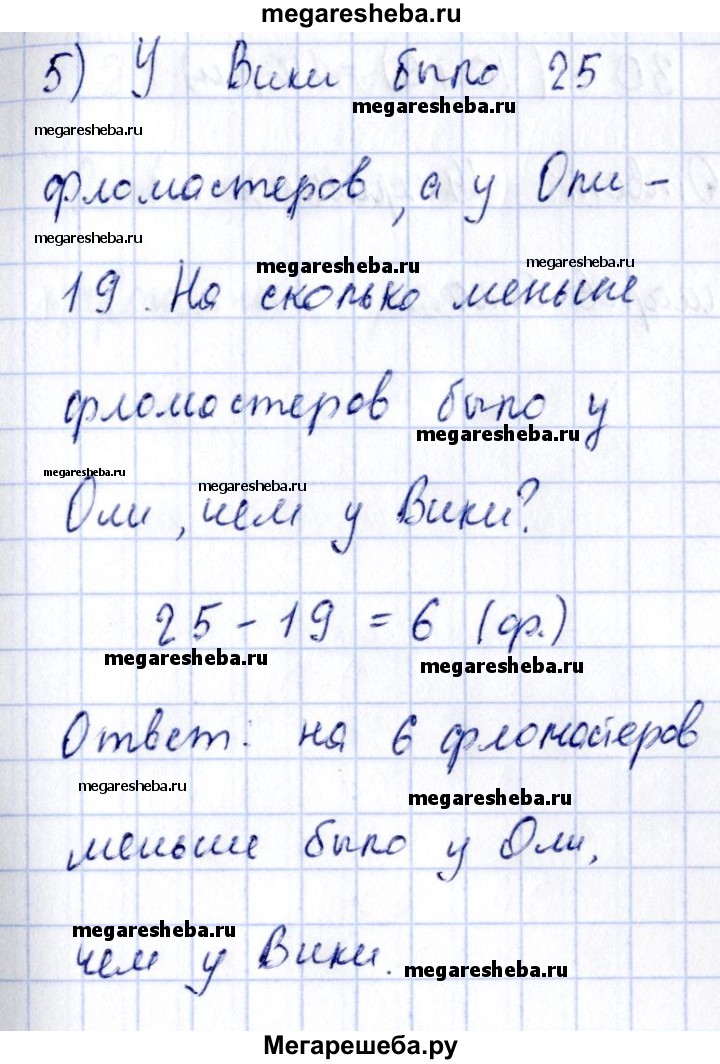 megaresheba.ru
5) У Вики было 25
megaresheba.ru
megaresheba.ru
фломастеров, а у Оли -
megaresheba.ru
megaresheba.ru
megaresheba.ru
19. На сколько меньше
фломастеров было у
megaresheba.ru
megaresheba.ru
megaresheba.ru
Оли, чем у Вики?
25 - 19 = 6 (ф.)
megaresheba.ru
megaresheba.ru
Ответ: на 6 фломастеров
megaresheba.ru
megaresheba.ru
меньше было у Оли,
megaresheba.ru
чем у Вики.
megaresheba.ru
Мегарешеба.ру